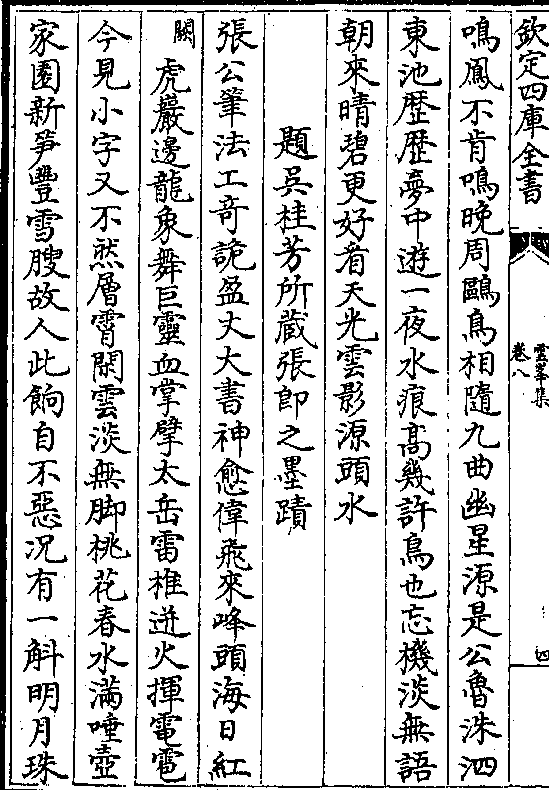 欽定四庫全書
雲峯集
卷八
四
鳴鳳不肯鳴晚周鷗鳥相隨九曲幽星源是公魯洙泗
東池歴歴夢中遊一夜水痕髙幾許鳥也忘機淡無語
朝來晴碧更好看天光雲影源頭水
題吳桂芳所藏張即之墨蹟
張公筆法工竒詭盈丈大書神愈偉飛來峰頭海日紅
闕虎巖邊龍象舞巨靈血掌擘太岳雷椎迸火揮電雹
今見小字又不然層霄閑雲淡無脚桃花春水滿唾壺
家園新笋豐雪膄故人此餉自不惡况有一斛明月珠